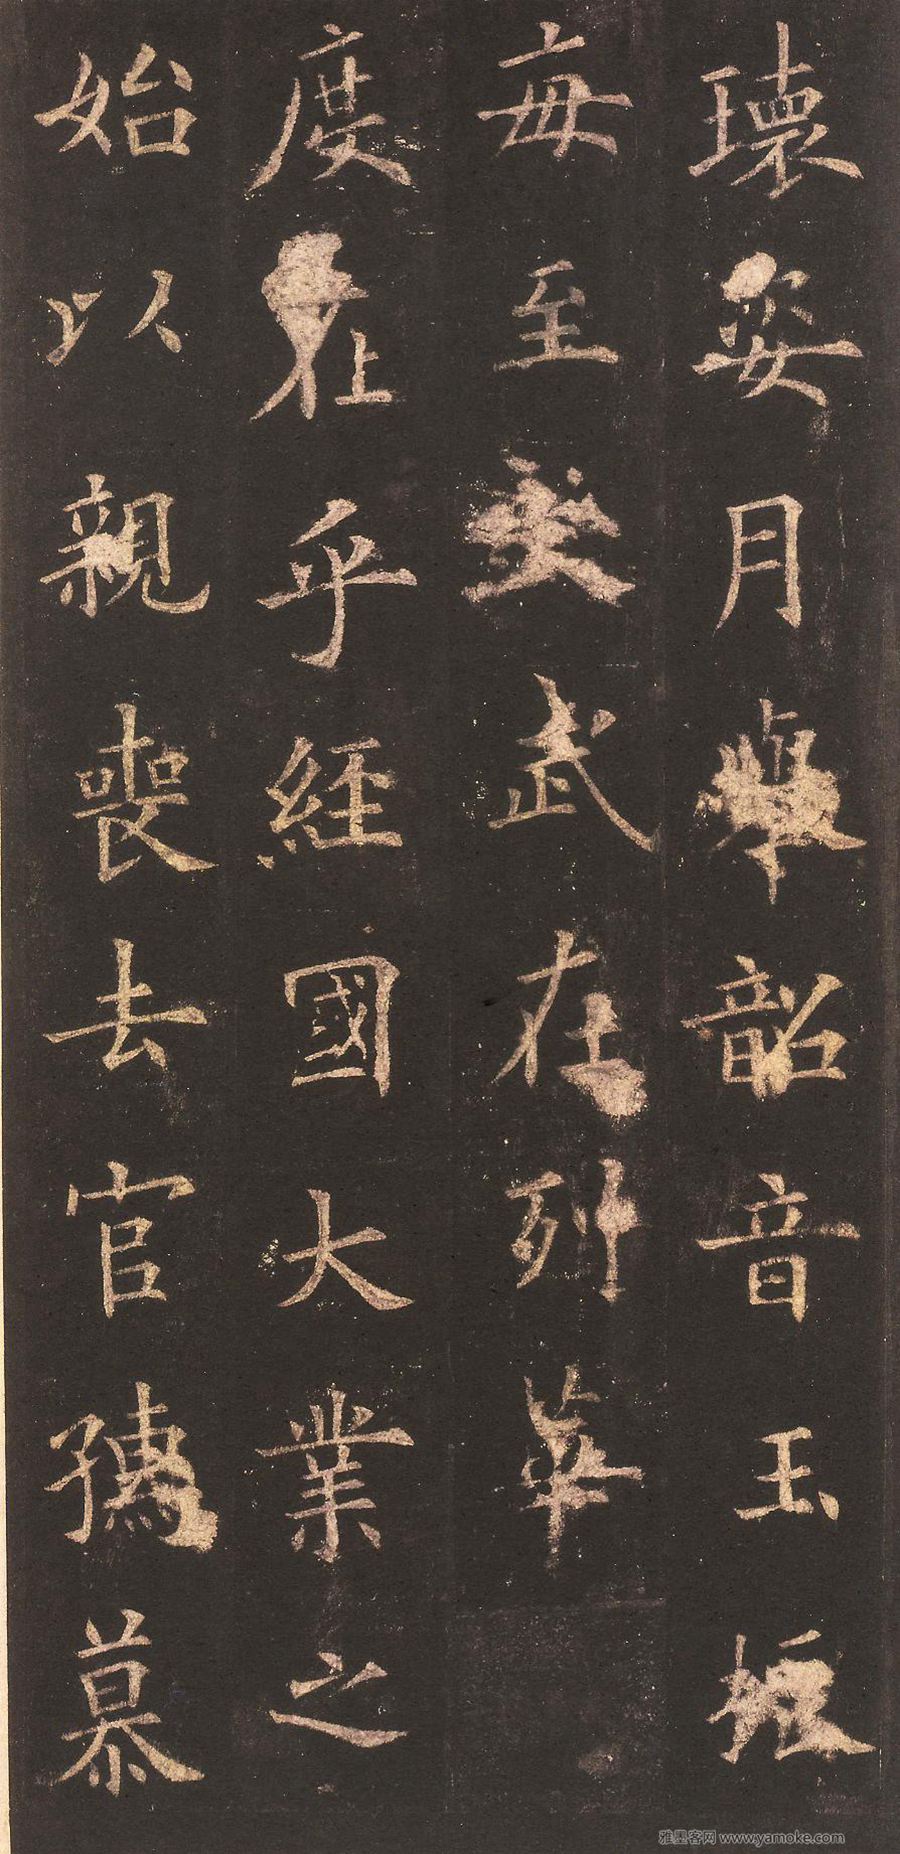 瓌姿月舉韶音玉
每至武在列華
度在乎經國大業之
始以親喪去官孺慕
雅墨客网 www.yamoke.com